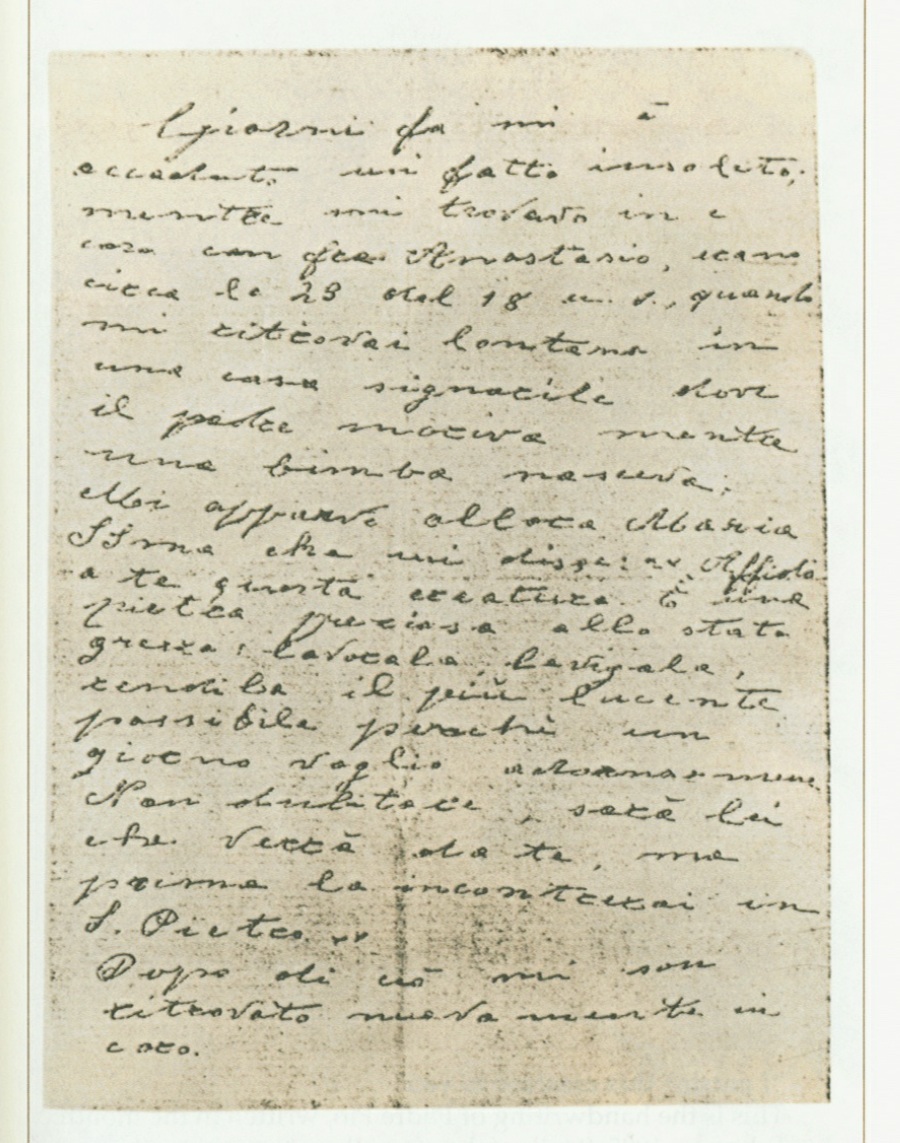 Giorni fa mi è
accadut. un fatto insolito:
mentre mi trovavo in c
coro con fra Anastasio, erano
circa le 23 del 18 u. s., quando
mi ritrovai lontano in
una casa signorile dove
il padre moriva mentre
una bimba nasceva.
Mi apparve allora Maria
SSma che mi disse: «Affido
a te questa creatura. È una
pietra preziosa allo stato
grezzo: lavorala, levigala,
rendila il più lucente
possibile perché un
giorno voglio adornarmene.
Non dubitare, sarà lei
che verrà da te, ma
prima la incontrerai in
S. Pietro.»
Dopo di ciò mi son
ritrovato nuovamente in
coro.